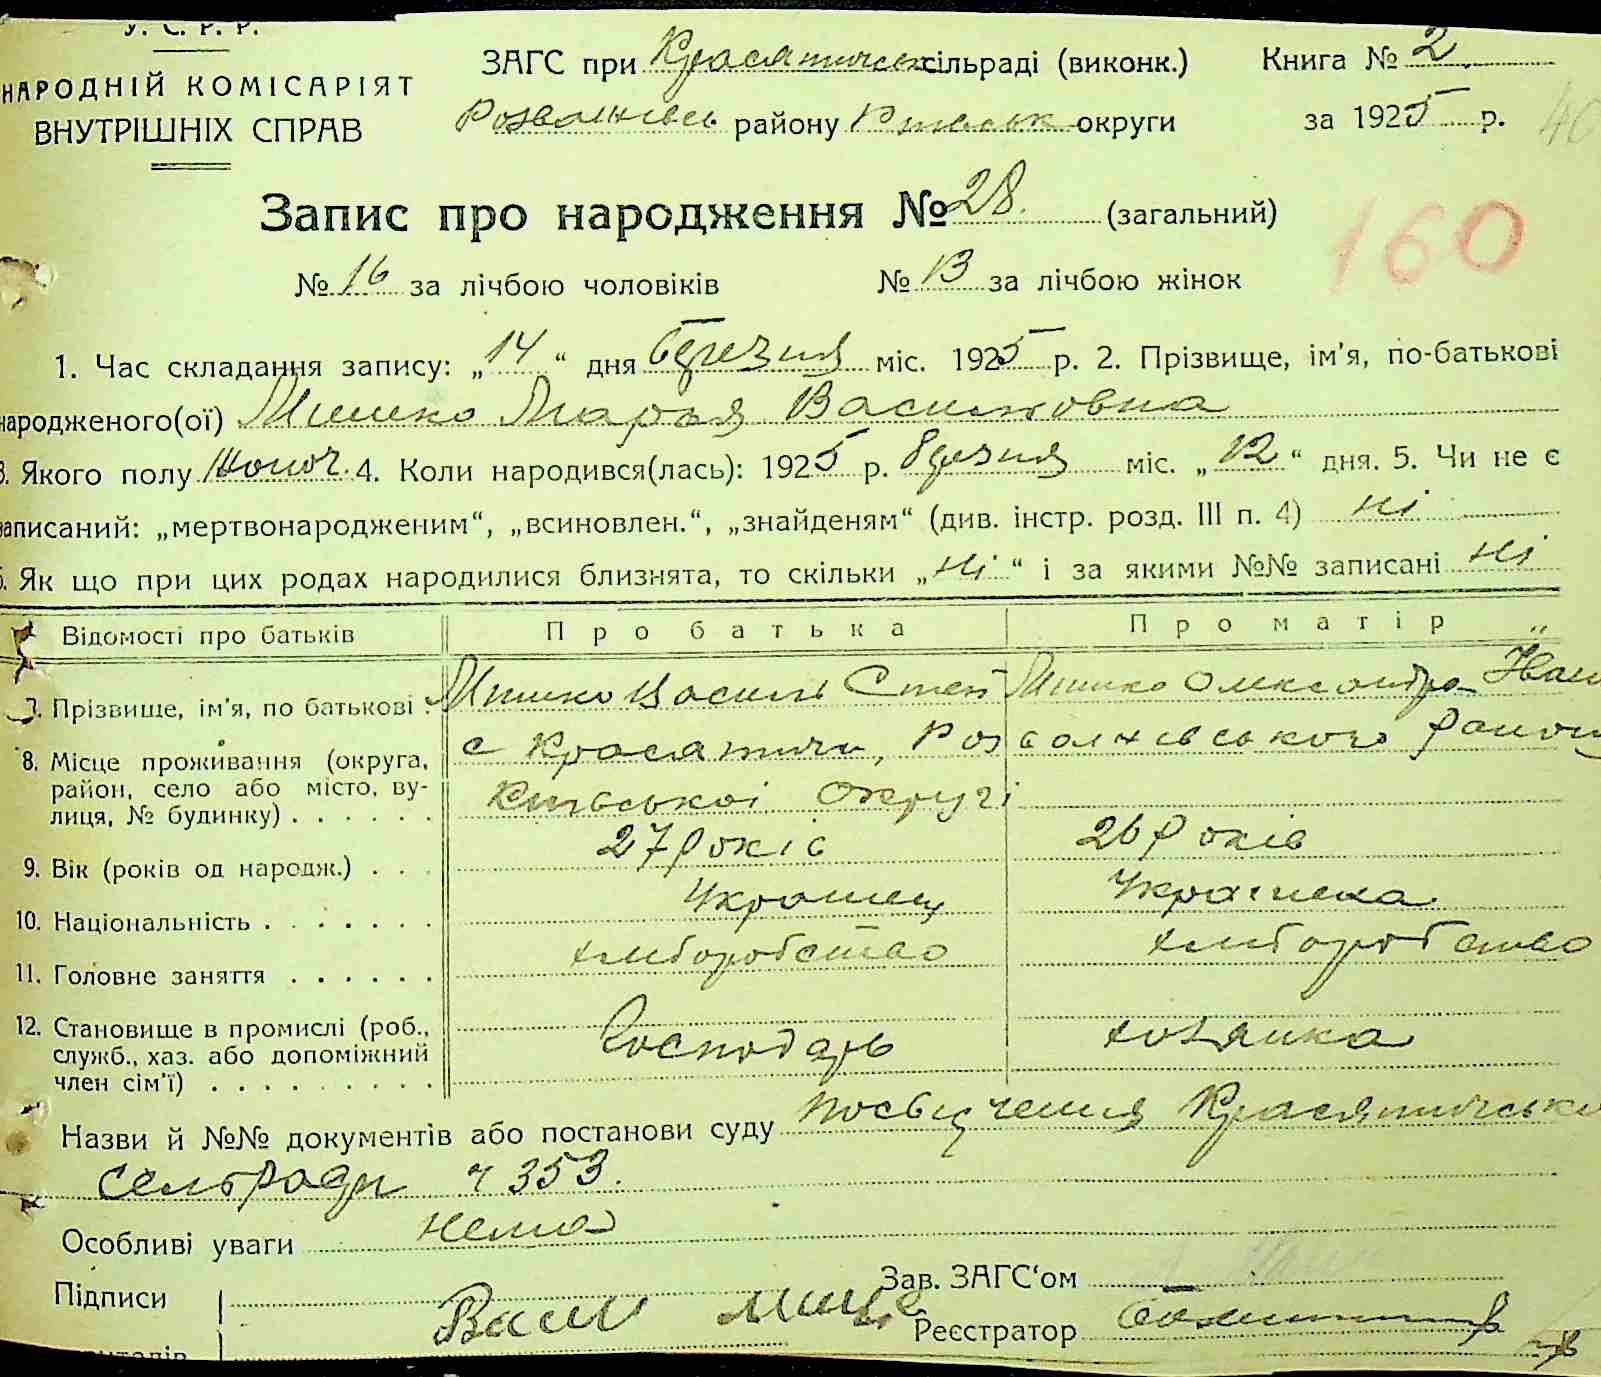 У. С. Р. Р.
НАРОДНІЙ КОМІСАРІЯТ
ВНУТРІШНІХ СПРАВ
ЗАГС при Красятичськ сільраді (виконк.)
Розважівськ району Київськ округи
Книга № 2.
за 1925 р.
40
Запис про народження № 28. (загальний)
160
№ 16 за лічбою чоловіків № 13 за лічбою жінок
1. Час складання запису: „14“ дня березня міс. 1925 р. 2. Прізвище, ім'я, по-батькові
народженого(ої) Мишко Марья Василювна
3. Якого полу жіноч. 4. Коли народився(лась): 1925 р. березня міс. „12“ дня. 5. Чи не є
записаний: „мертвонародженим“, „всиновлен.“, „знайденям“ (див. інстр. розд. III п. 4) ні
6. Як що при цих родах народилися близнята, то скільки „ні“ і за якими №№ записані ні
Відомості про батьків Про батька Про матір
7. Прізвище, ім'я, по батькові . Мишко Василь Степ Мишко Олександра Іван
8. Місце проживання (округа, район, село або місто, вулиця, № будинку) . . . . . . с Красятичи, Розважівського району
Київської округі
9. Вік (років од народж.) . . . 27 років 26 років
10. Національність . . . . . . . Украинец Украінка
11. Головне заняття . . . . . . хліборобство хліборобство
12. Становище в промислі (роб., служб., хаз. або допоміжний член сім'ї) . . . . . . . . . Господарь хозяйка
Назви й №№ документів або постанови суду посвідчения Красятичсько
сельради ч 353.
Особливі уваги нема
Підписи
Зав. ЗАГС'ом
Реєстратор